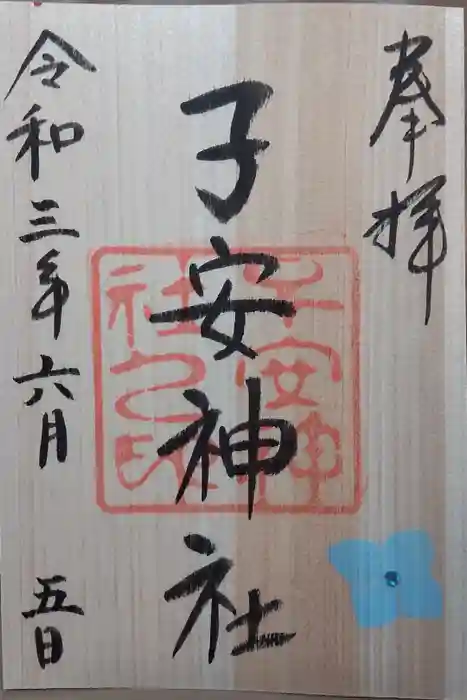 奉拝
子安神社
子安神
社之印
令和三年六月 五日